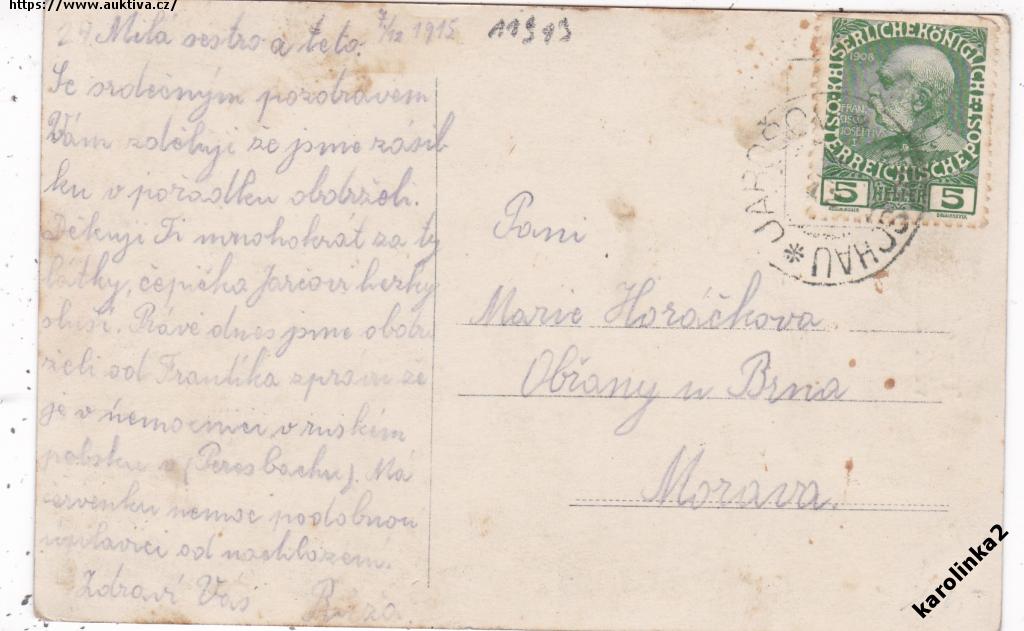 https://www.auktiva.cz/
24 Milá sestro a teto. 7/12 1915
11913
Se srdečným pozdravem
Vám zděluji že jsme zásil
ku v pořádku obdrželi.
Děkuji Ti mnohokrát za ty
látky, čepička Jarčovi hezky
sluší. Právě dnes jsme obdr
želi od Frantíka zprávu že
je v nemocnici v ruském
polsku v (Peresbachu). Má
červenku nemoc podobnou
úplavici od nachlazení.
Zdraví Vás Růža
KAISERLICHE KÖNIGLICHE
ÖSTERREICHISCHE POST
1908
FRAN
CISC
IOSEPH
I
5 HELLER 5
JAROŠOV
JAROSCHAU
Paní
Marie Horáčkova
Obřany u Brna
Morava.
karolinka2